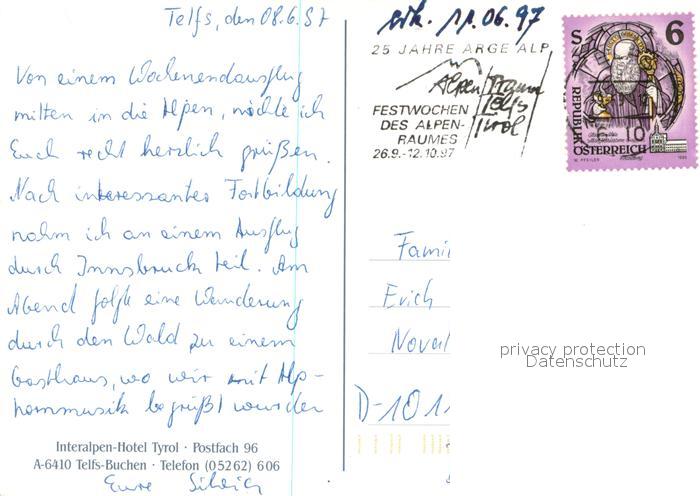 Telfs, den 08.6.97
Von einem Wochenendausflug
mitten in die Alpen, möchte ich
Euch recht herzlich grüßen.
Nach interessanter Fortbildung
nahm ich an einem Ausflug
durch Innsbruck teil. Am
Abend folgte eine Wanderung
durch den Wald zu einem
Gasthaus, wo wir mit Alp-
hornmusik begrüßt wurden
Interalpen-Hotel Tyrol · Postfach 96
A-6410 Telfs-Buchen · Telefon (05262) 606
Eure
erh. 11.06.97
25 JAHRE ARGE ALP
Alpen Traum
Telfs
Tirol
FESTWOCHEN
DES ALPEN-
RAUMES
26.9.-12.10.97
S 6
REPUBLIK
ÖSTERREICH
10
Famil
Erich
Noval
D-101
privacy protection
Datenschutz